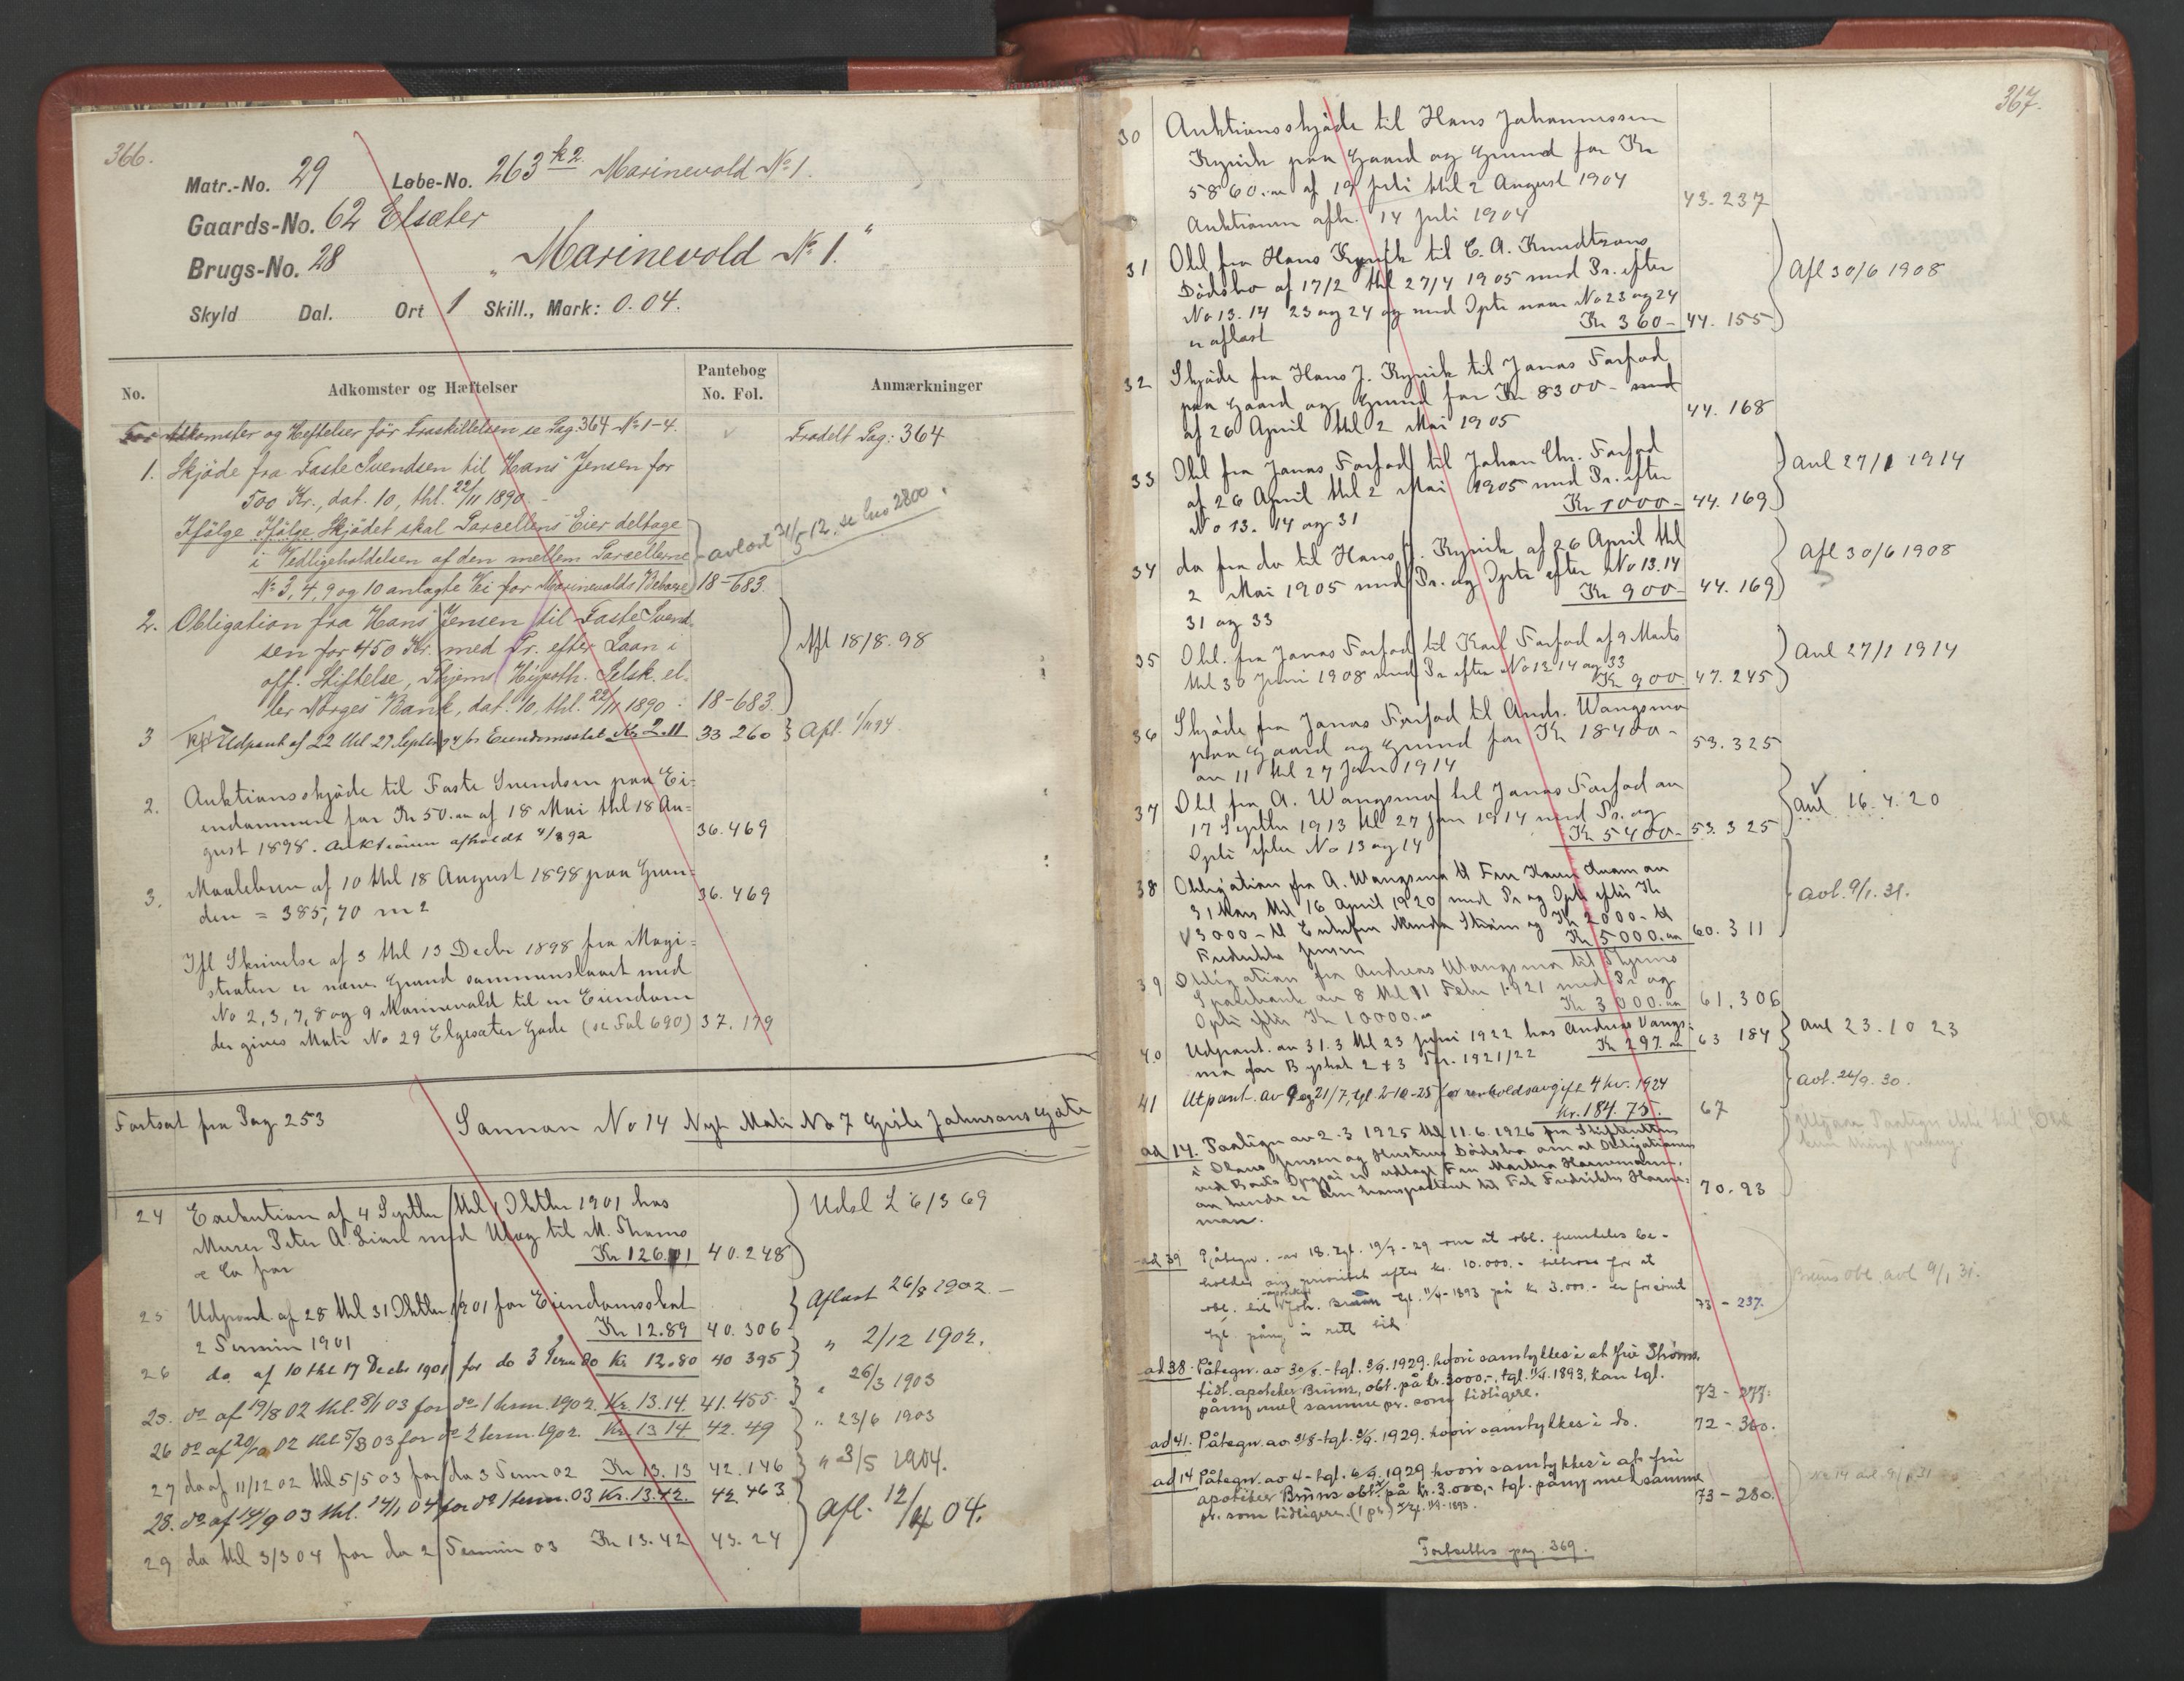 366.
Matr.-No. 29 Løbe-No. 263 k2 Marinevold No 1.
Gaards-No. 62 Elsæter
Brugs-No. 28 „Marinevold No 1."
Skyld Dal. Ort 1 Skill., Mark: 0.04.
No. Adkomster og Hæftelser Pantebog No. Fol. Anmærkninger
For Adkomster og Heftelser før Fraskillelsen se Pag. 364 No 1-4. Fradelt Pag: 364
1. Skjøde fra Faste Svendsen til Hans Jensen for
500 Kr., dat. 10, thl. 22/11 1890.
Ifølge Skjødet skal Parcellens Eier deltage
i Vedligeholdelsen af den mellem Parcellerne
No 3, 4, 9 og 10 anlagte Vei for Marinevolds Beboere 18-683. avlost 31/5-12. se 2800.
2. Obligation fra Hans Jensen til Faste Svend
sen for 450 Kr. med Pr. efter Laan i
off. Stiftelse, Thjems Hypoth. Selsk. el-
ler Norges Bank, dat. 10, thl. 22/11 1890: 18-683. Afl 18/8.98
3 Udpant af 22 thl 27 Septbr 94 for Eiendomsskat Kr 2.11 33 260 Afl. 1/11 94
2. Auktionsskjøde til Faste Svendsen paa Ei-
endommen for Kr 50.00 af 18 Mai thl 18 Au-
gust 1898. Auktionen afholdt 4/8 92 36.469
3. Maalebrev af 10 thl 18 August 1898 paa Grun-
den = 385,70 m2 36.469
Ifl Skrivelse af 3 thl 13 Decbr 1898 fra Magi-
straten er nævn Grund sammenslaaet med
No 2, 3, 7, 8 og 9 Marinevold til en Eiendom
der gives Matr No 29 Elgesæter Gade (se Fol 690) 37.179
Fortsat fra Pag 253 Sannan No 14 Nyt Matr No 7 Gisle Johnsons Gate
24 Exekution af 4 Septbr thl 1 Oktbr 1901 hos
Murer Peter A. Lian med Udlæg til M. Thams
& Co for Kr 126.01 40.248 Udsl L 6/3 69
25 Udpant af 28 thl 31 Oktbr 1901 for Eiendomsskat
2 Termin 1901 Kr 12.89 40.306 Aflæst 26/8 1902.-
26 do af 10 thl 17 Decbr 1901 for do 3 Term do Kr 12.80 40 395 " 2/12 1902.
25. do af 19/8 02 thl. 8/1 03 for do 1 term. 1902. Kr. 13.14. 41.455. " 26/3 1903
26 do af 20/10 02 thl 5/3 03 for do 2 term. 1902. Kr. 13 14 42.49 " 23/6 1903
27 do af 11/12 02 thl 5/5 03 for do 3 Term 02 Kr 13.13 42.146 " 3/5 1904.
28. do af 14/9 03 thl. 14/1 04 for do 1 term. 03 Kr. 13.42. 42.463
29 do thl 3/3 04 for do 2 Termin 03 Kr 13.42 43.24 Afl. 12/4 04.
367.
30 Auktionsskjøde til Hans Johannessen
Kynik paa Gaard og Grund for Kr
5860.00 af 19 juli thl 2 August 1904
Auktionen afh. 14 juli 1904 43.237
31 Obl fra Hans Kynik til C. A. Knudtzons
Dødsbo af 17/2 thl 27/4 1905 med Pr. efter
No 13. 14 23 og 24 og med Opte naar No 23 og 24
er aflæst Kr 360- 44.155 Afl 30/6 1908
32 Skjøde fra Hans J. Kynik til Jonas Forfod
paa Gaard og Grund for Kr 8300- med
af 26 April thl 2 Mai 1905 44.168
33 Obl fra Jonas Forfod til Johan Chr. Forfod
af 26 April thl 2 Mai 1905 med Pr. efter
No 13. 14 og 31 Kr 1000- 44.169 Avl 27/1 1914
34 do fra do til Hans J. Kynik af 26 April thl
2 Mai 1905 med Pr. og Opte efter No 13.14
31 og 33 Kr 900- 44.169 Afl 30/6 1908
35 Obl. fra Jonas Forfod til Karl Forfod af 9 Marts
thl 30 Juni 1908 med Pr efter No 13 14 og 33
Kr 900. 47.245 Avl 27/1 1914
36 Skjøde fra Jonas Forfod til Andr. Wangsmo
paa Gaard og Grund for Kr 18400-
av 11 thl 27 Jan 1914 53.325
37 Obl fra A. Wangsmo til Jonas Forfod av
17 Septbr 1913 thl 27 Jan 1914 med Pr. og
Opte efter No 13 og 14 Kr 5400- 53.325 avl 16.4.20
38 Obligation fra A. Wangsmo til Fru Karen Kvam av
31 Mars thl 16 April 1920 med Pr og Opte efter Kr
3000- til Enkefru Strøm og Kr 2000- til
Fredrikke Jensen Kr 5000.00 60.311 avl. 9/1.31.
39 Obligation fra Andreas Wangsmo til Thjems
Sparebank av 8 thl 11 Febr 1921 med Pr og
Opte efter Kr 10000.00 Kr 3000.00 61.306
40 Udpant. av 31.3 thl 23 juni 1922 hos Andreas Vangs-
mo for Byskat 2 + 3 Ter. 1921/22 Kr 297.00 63 184 Avl 23.10 23
41 Utpant. av 9 og 21/7, tgl. 2-10-25 for renholdsavgift 4 kv. 1924
kr. 184.75. 67 avl. 26/9.30.
ad 14. Paategn av 2.3 1925 thl 11.6.1926 fra Skifteretten
i Olaus Jensen og Hustrus Dødsbo om at Obligationen
ved Boets Opgjør er utlagt Fru Martha Hornemann,
av hende er den transportert til Frk Fredrikke Horne-
man. 70.93
ad 39 Påtegn. av 18. tgl. 19/7-29 om at obl. fremdeles be-
holder sin prioritet efter kr. 10.000.- tiltross for at
obl. til apoteker Joh. Bruun tgl. 11/4-1893 på kr. 3.000.- er forsynt
tgl. påny i rett tid 73-237. Brüns obl avl 9/1 31.
ad 38. Påtegn. av 30/8.-tgl. 3/9.1929. hvori samtykkes i at fru Strøms,
tidl. apoteker Brüns, obl. på kr. 3000.-, tgl. 11/4.1893, kan tgl.
påny med samme pr. som tidligere. 73-277.
ad 41. Påtegn. av 31/8-tgl. 3/9.1929. hvori samtykkes i do. 72-360.
ad 14 Påtegn. av 4-tgl. 6/9.1929 hvori samtykkes i at fru
apoteker Brüns obl. på kr. 3.000,- tgl. påny med samme
pr. som tidligere. (1 pr.) tgl. 11/4-1893. 73-280. No 14 avl. 9/1 31
Fortsettes pag. 369.